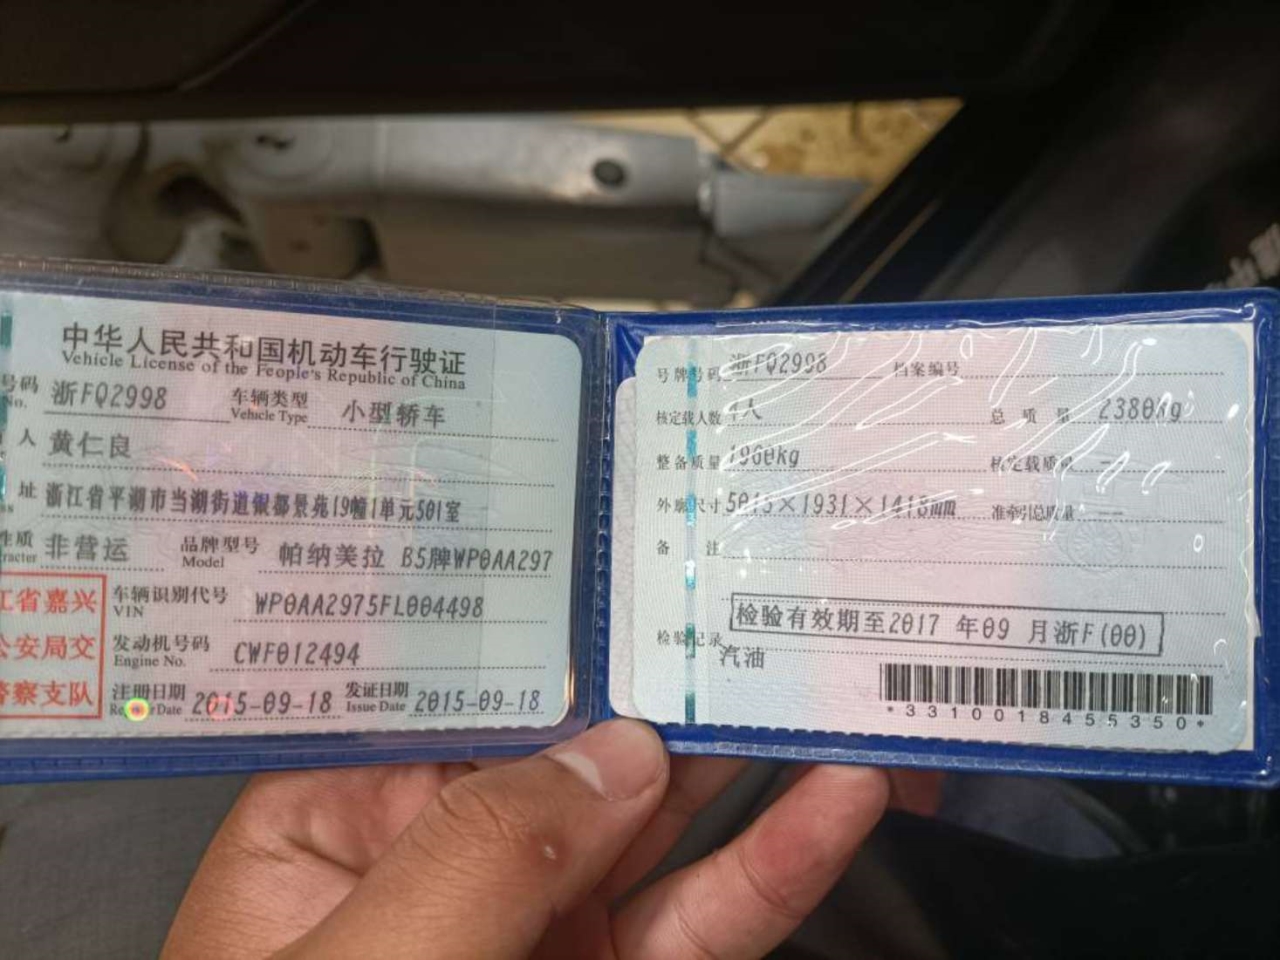 中华人民共和国机动车行驶证
Vehicle License of the People's Republic of China
号码 浙FQ2998 车辆类型 小型轿车
No. Vehicle Type
人 黄仁良
址 浙江省平湖市当湖街道银都景苑19幢1单元501室
性质 非营运 品牌型号 帕纳美拉 B5牌WP0AA297
racter Model
车辆识别代号 WP0AA2975FL004498
VIN
发动机号码 CWF012494
Engine No.
注册日期 2015-09-18 发证日期 2015-09-18
Register Date Issue Date
江省嘉兴
公安局交
警察支队
号牌号码 浙FQ2998 档案编号
核定载人数 4人 总质量 2380kg
整备质量 1960kg 核定载质量 —
外廓尺寸 5015×1931×1418mm 准牵引总质量 —
备注
检验有效期至2017 年09 月浙F(00)
检验记录
汽油
*3310018455350*